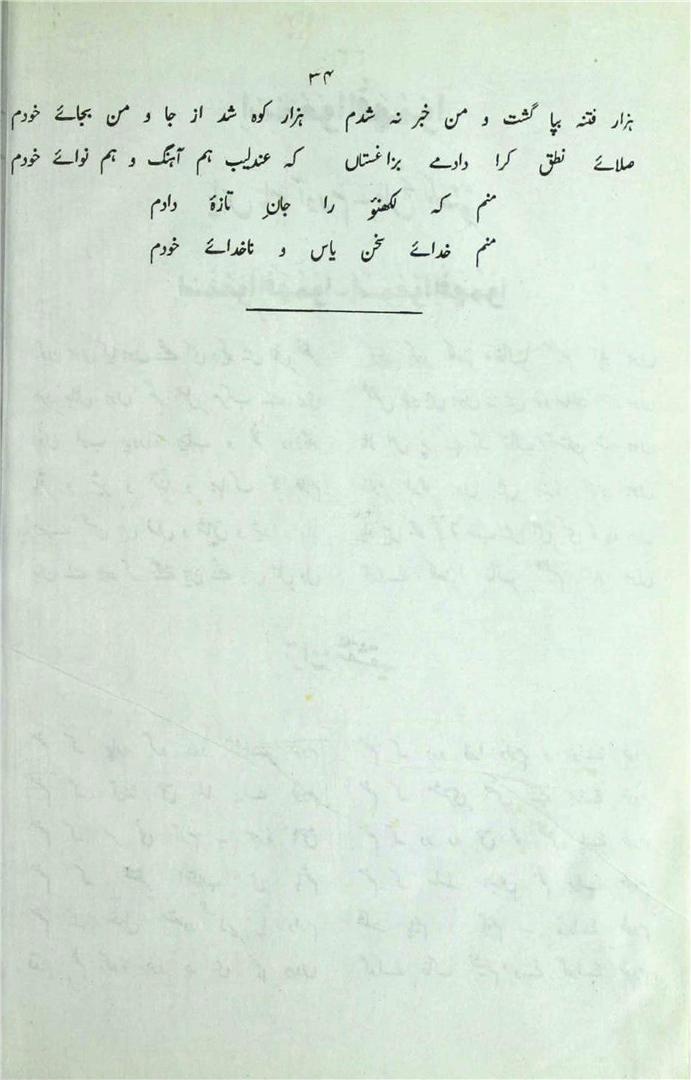 ۳۴
ہزار فتنہ بپا گشت و من خبر نہ شدم ہزار کوہ شد از جا و من بجائے خودم
صلائے نطق کرا دادمے بزاغستاں کہ عندلیب ہم آہنگ و ہم نوائے خودم
منم کہ لکھنؤ را جانِ تازۂ دادم
منم خدائے سخن یاس و ناخدائے خودم